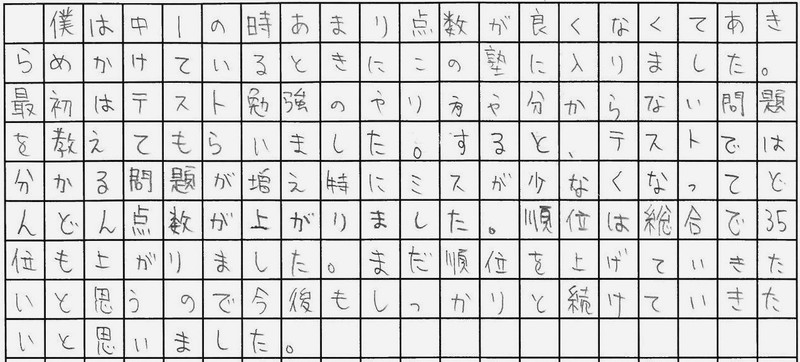 僕は中1の時あまり点数が良くなくてあき
らめかけているときにこの塾に入りました。
最初はテスト勉強のやり方や分からない問題
を教えてもらいました。すると、テストでは
分かる問題が増え特にミスが少なくなってど
んどん点数が上がりました。順位は総合で35
位も上がりました。まだ順位を上げていきた
いと思うので今後もしっかりと続けていきた
いと思いました。